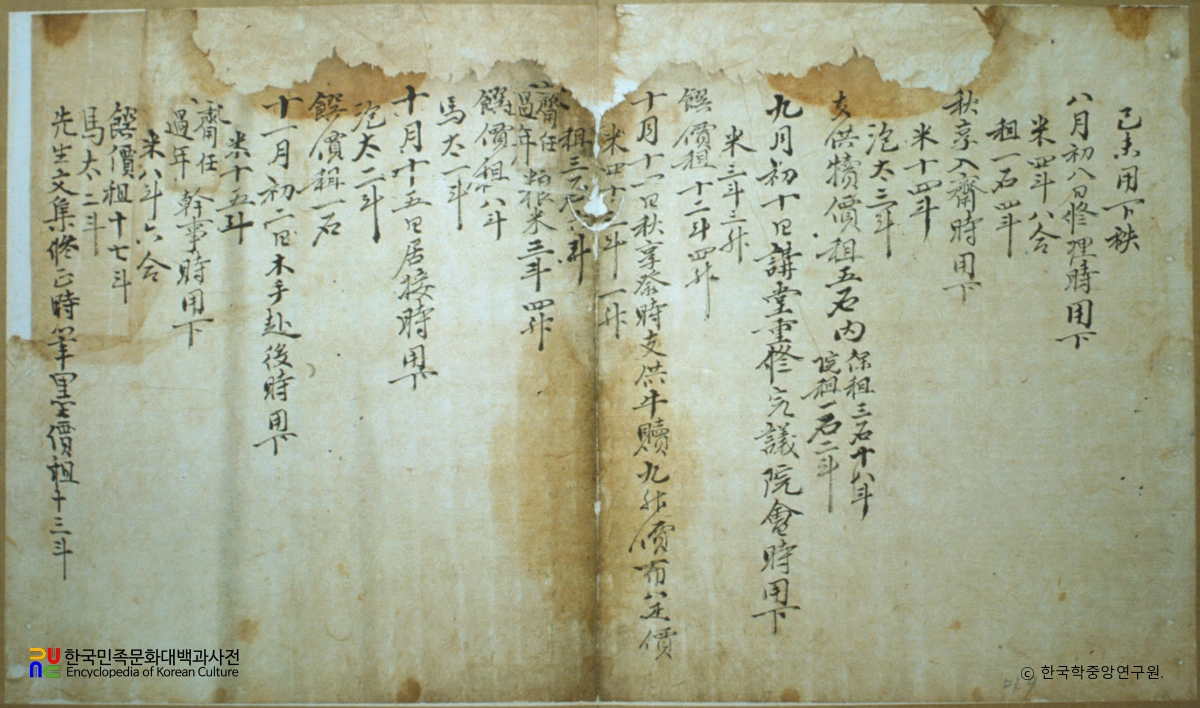 己未用下秩
八月初八日修理時用下
米四斗八合
租一石四斗
秋享入齋時用下
米十四斗
泡太三斗
支供犢價租五石內
保租三石十八斗
院租一石二斗
九月初十日講堂重修完議院會時用下
米三斗三升
饌價租十二斗四升
十月十一日秋享祭時支供牛贖九升價布八疋價
米四十二斗一升
租三石八斗
齋任過年粮米三斗四升
饌價租八斗
馬太一斗
十月十五日居接時用下
泡太二斗
饌價租一石
十一月初二日木手赴後時用下
米十五斗
齋任過年幹事時用下
米八斗六合
饌價租十七斗
馬太二斗
先生文集修正時筆墨價租十三斗
한국민족문화대백과사전
Encyclopedia of Korean Culture
© 한국학중앙연구원.